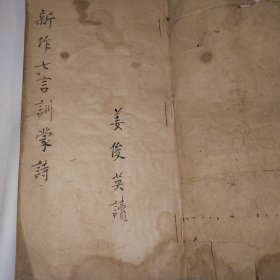 新作七言訓蒙詩
姜俊英讀